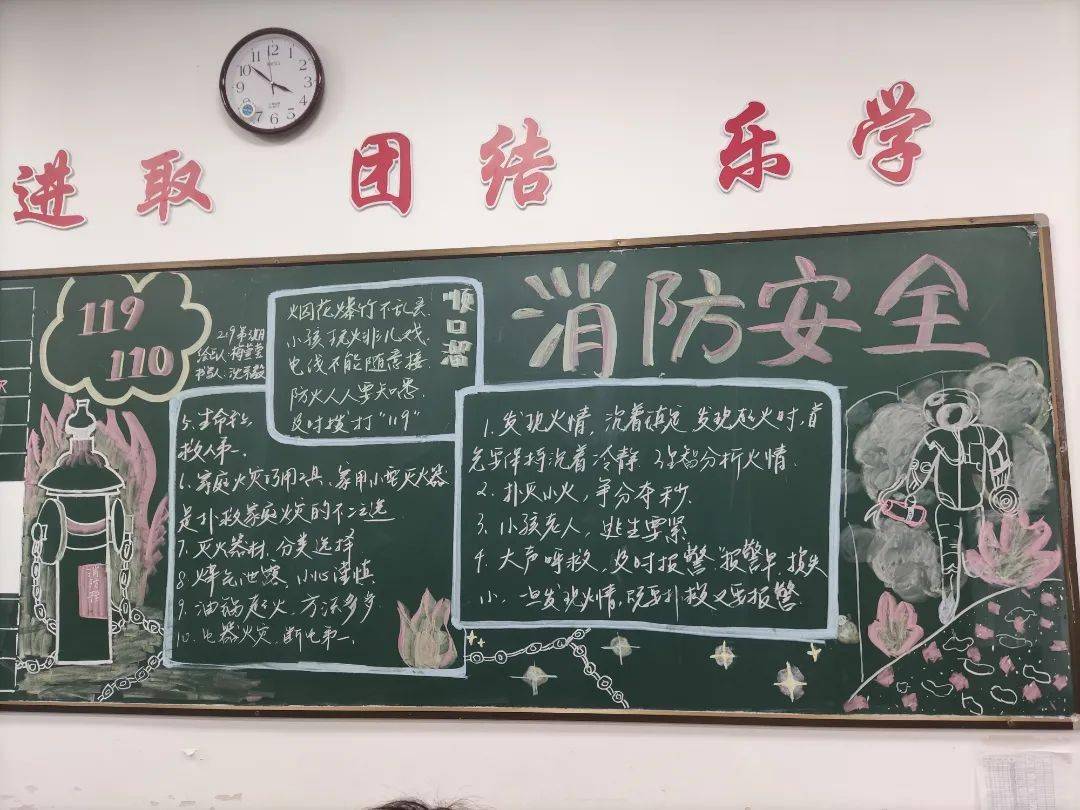 进取 团结 乐学
消防安全
119
110
219第2期
绘画人:梅莹莹
书写人:沈
顺口溜
烟花爆竹不乱丢
小孩玩火非儿戏
电线不能随意接
防火人人要知悉
及时拨打"119"
1.发现火情,沉着镇定 发现起火时,首
先要保持沉着冷静,理智分析火情.
2.扑灭小火,争分夺秒.
3.小孩老人,逃生要紧
4.大声呼救,及时报警.报警早,损失
小,一旦发现火情,既要扑救又要报警
5.生命和,
救人第一.
6.家庭火灾巧用工具,家用小型灭火器
是扑救家庭火灾的不二选
7.灭火器材,分类选择
8.煤气泄露,小心谨慎
9.油锅起火,方法多多
10.电器火灾,断电第一,
消防栓